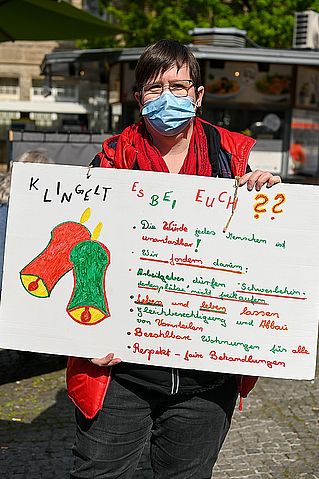 KLINGELT ES BEI EUCH ??
• Die Würde jedes Menschen ist
unantastbar!
• Wir fordern darum:
• Arbeitgeber dürfen "Schwerbehin-
dertenplätze" nicht freikaufen
• leben und leben lassen
• Gleichberechtigung und Abbau
von Vorurteilen
• Bezahlbare Wohnungen für alle
• Respekt - faire Behandlungen